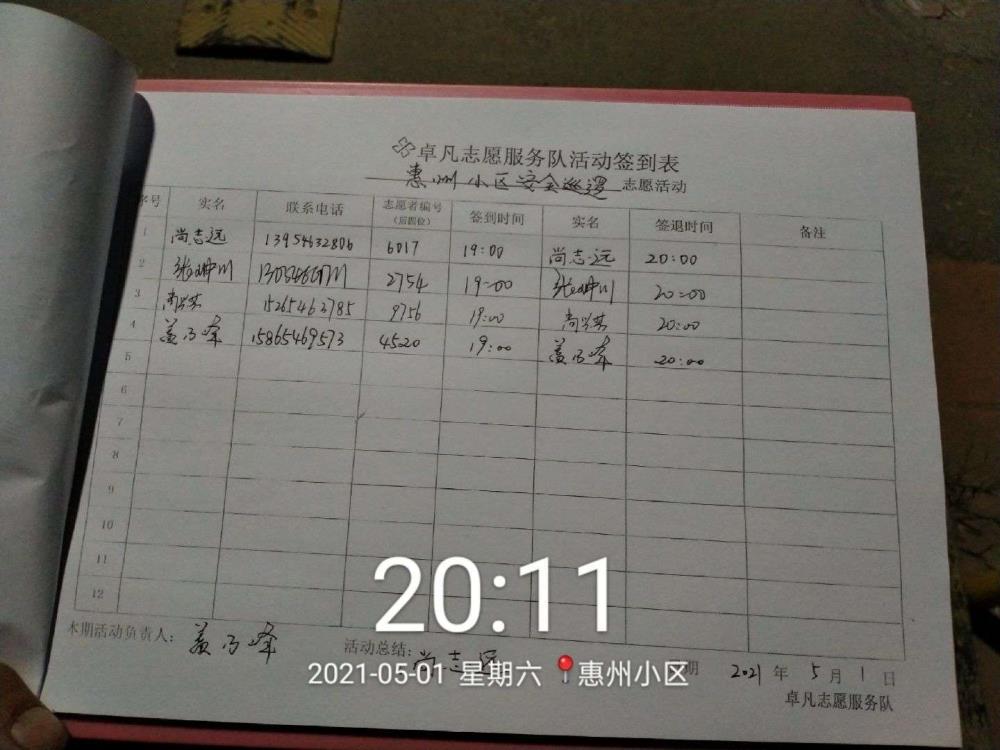 卓凡志愿服务队活动签到表
惠州小区安全巡逻 志愿活动
序号 实名 联系电话 志愿者编号(后四位) 签到时间 实名 签退时间 备注
1 尚志远 13954632806 6017 19:00 尚志远 20:00
2 2754 19:00 20:00
3 15265463785 9756 19:00 20:00
4 15865469573 4520 19:00 20:00
5
6
7
8
9
10
11
12
本期活动负责人: 活动总结: 尚志远 期 2021 年 5 月 1 日
卓凡志愿服务队
20:11
2021-05-01 星期六 惠州小区